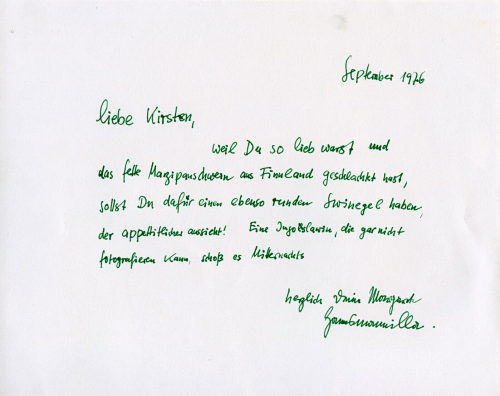 September 1976
liebe Kirsten,
weil Du so lieb warst und
das fette Marzipanschwein aus Finnland geschlachtet hast,
sollst Du dafür einen ebenso runden Swinegel haben,
der appetitlicher aussieht! Eine Jugoslawin, die gar nicht
fotografieren kann, schoß es Mitternachts
herzlich Deine